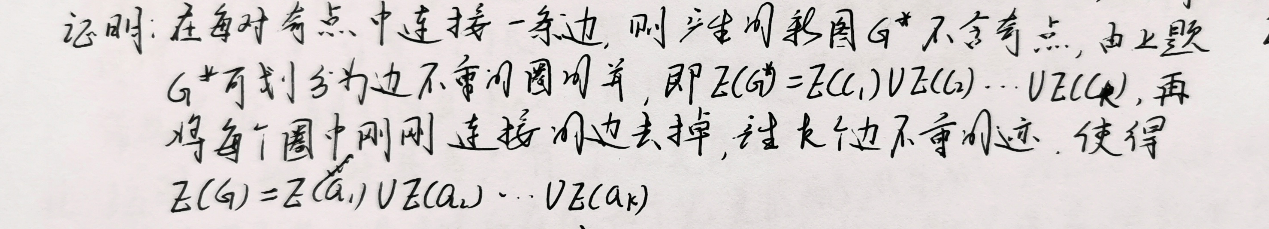 证明:在每对奇点中连接一条边,则产生的新图G*不含奇点,由上题
G*可划分为边不重的圈的并,即E(G*)=E(C₁)∪E(C₂)…∪E(Cₖ),再
将每个圈中刚刚连接的边去掉,产生k个边不重的迹.使得
E(G)=E(a₁)∪E(a₂)…∪E(aₖ)